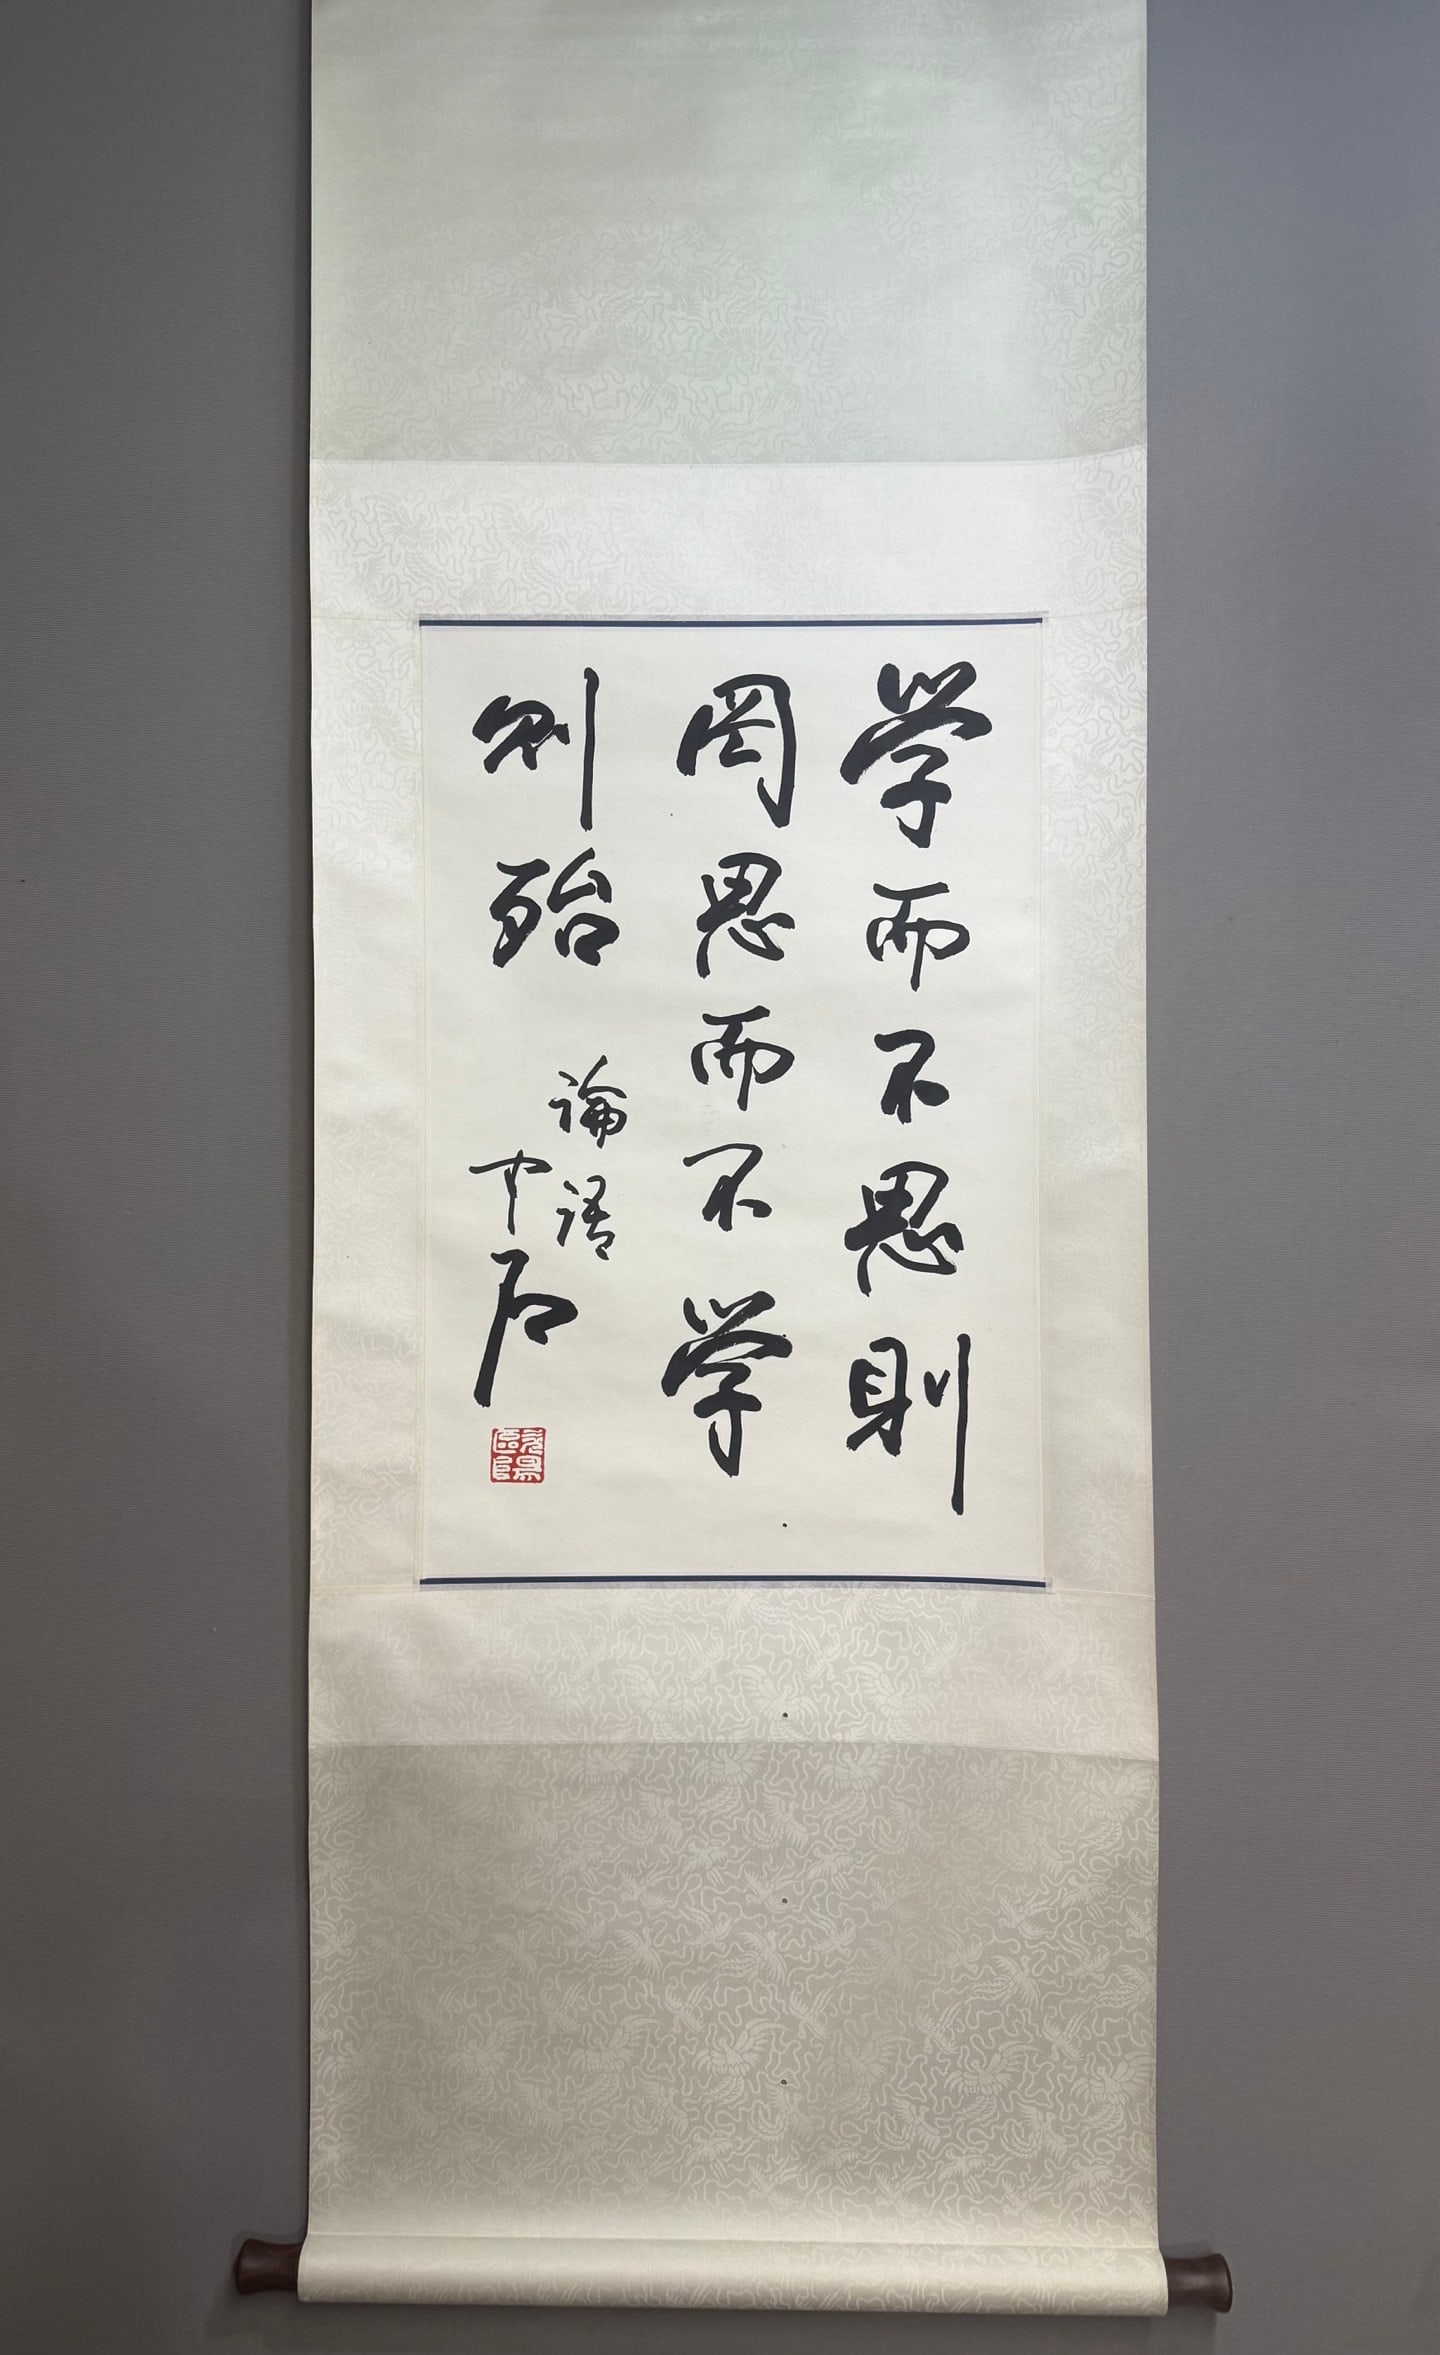 学而不思则
罔思而不学
则殆
论语
中石
欧阳